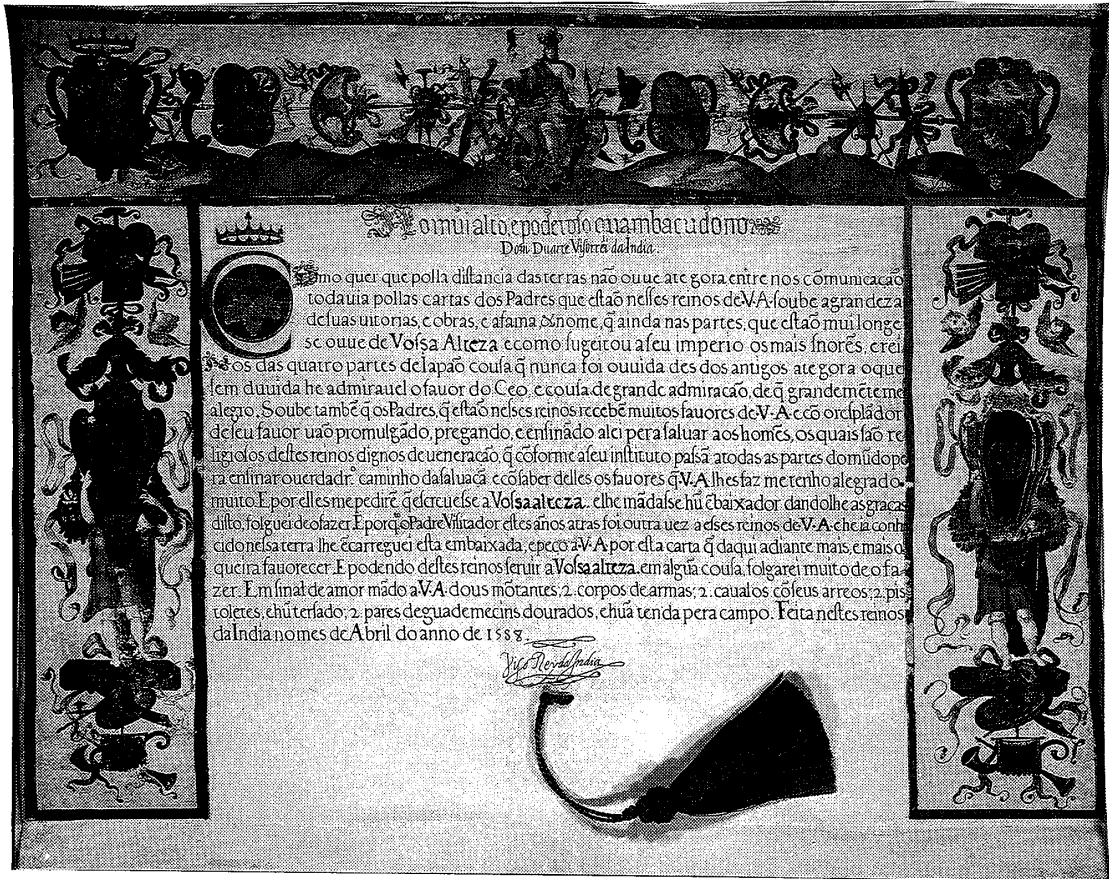 Ao mui alto, e poderoso cuambacudono
Dom Duarte Visorrei da India
Como quer que polla distancia das terras não ouue ate gora entre nos cõmunicação
todauia pollas cartas dos Padres que estão nesses reinos de V·A·soube a grandeza
de suas uitorias, e obras, e a fama & nome, q̃ ainda nas partes, que estão mui longe
se ouue de Vossa Alteza e como sugeitou a seu imperio os mais snorẽs, e rei
nos das quatro partes de Iapão cousa q̃ nunca foi ouuida des dos antigos ate gora o que
sem duuida he admirauel o fauor do Ceo, e cousa de grande admiração, de q̃ grandemẽte me
alegro. Soube tambẽ q̃ os Padres, q̃ estão nesses reinos recebẽ muitos fauores de V·A· e cõ o resplãdor
de seu fauor uão promulgãdo, pregando, e ensinãdo a lei pera saluar aos homẽs, os quais são re
ligiosos destes reinos dignos de ueneração, q̃ cõforme a seu instituto passã a todas as partes do mũdo pe
ra ensinar o uerdadrº caminho da saluaçã e cõ saber delles os fauores q̃ V·A· lhes faz me tenho alegrado
muito. E por elles me pedirẽ q̃ escreuesse a Vossa alteza. e lhe mãdasse hũ ẽbaixador dandolhe as graças
disto, folguei de o fazer. E porq̃ o Padre Visitador estes años atras foi outra uez a esses reinos de V·A· e he ia conh
cido nessa terra lhe ẽcarreguei esta embaixada, e peço a V·A por esta carta q̃ daqui adiante mais, e mais o
queira fauorecer. E podendo destes reinos seruir a Vossa alteza. em algũa cousa, folgarei muito de o fa
zer. Em sinal de amor mãdo a V·A· dous mõtantes, 2. corpos de armas; 2. caualos cõ seus arreos; 2. pis
toletes, e hũ tersado; 2 pares de guademecins dourados, e hũa tenda pera campo. Feita nestes reinos
da India no mes de Abril do anno de 1588.
Viso Rey da India